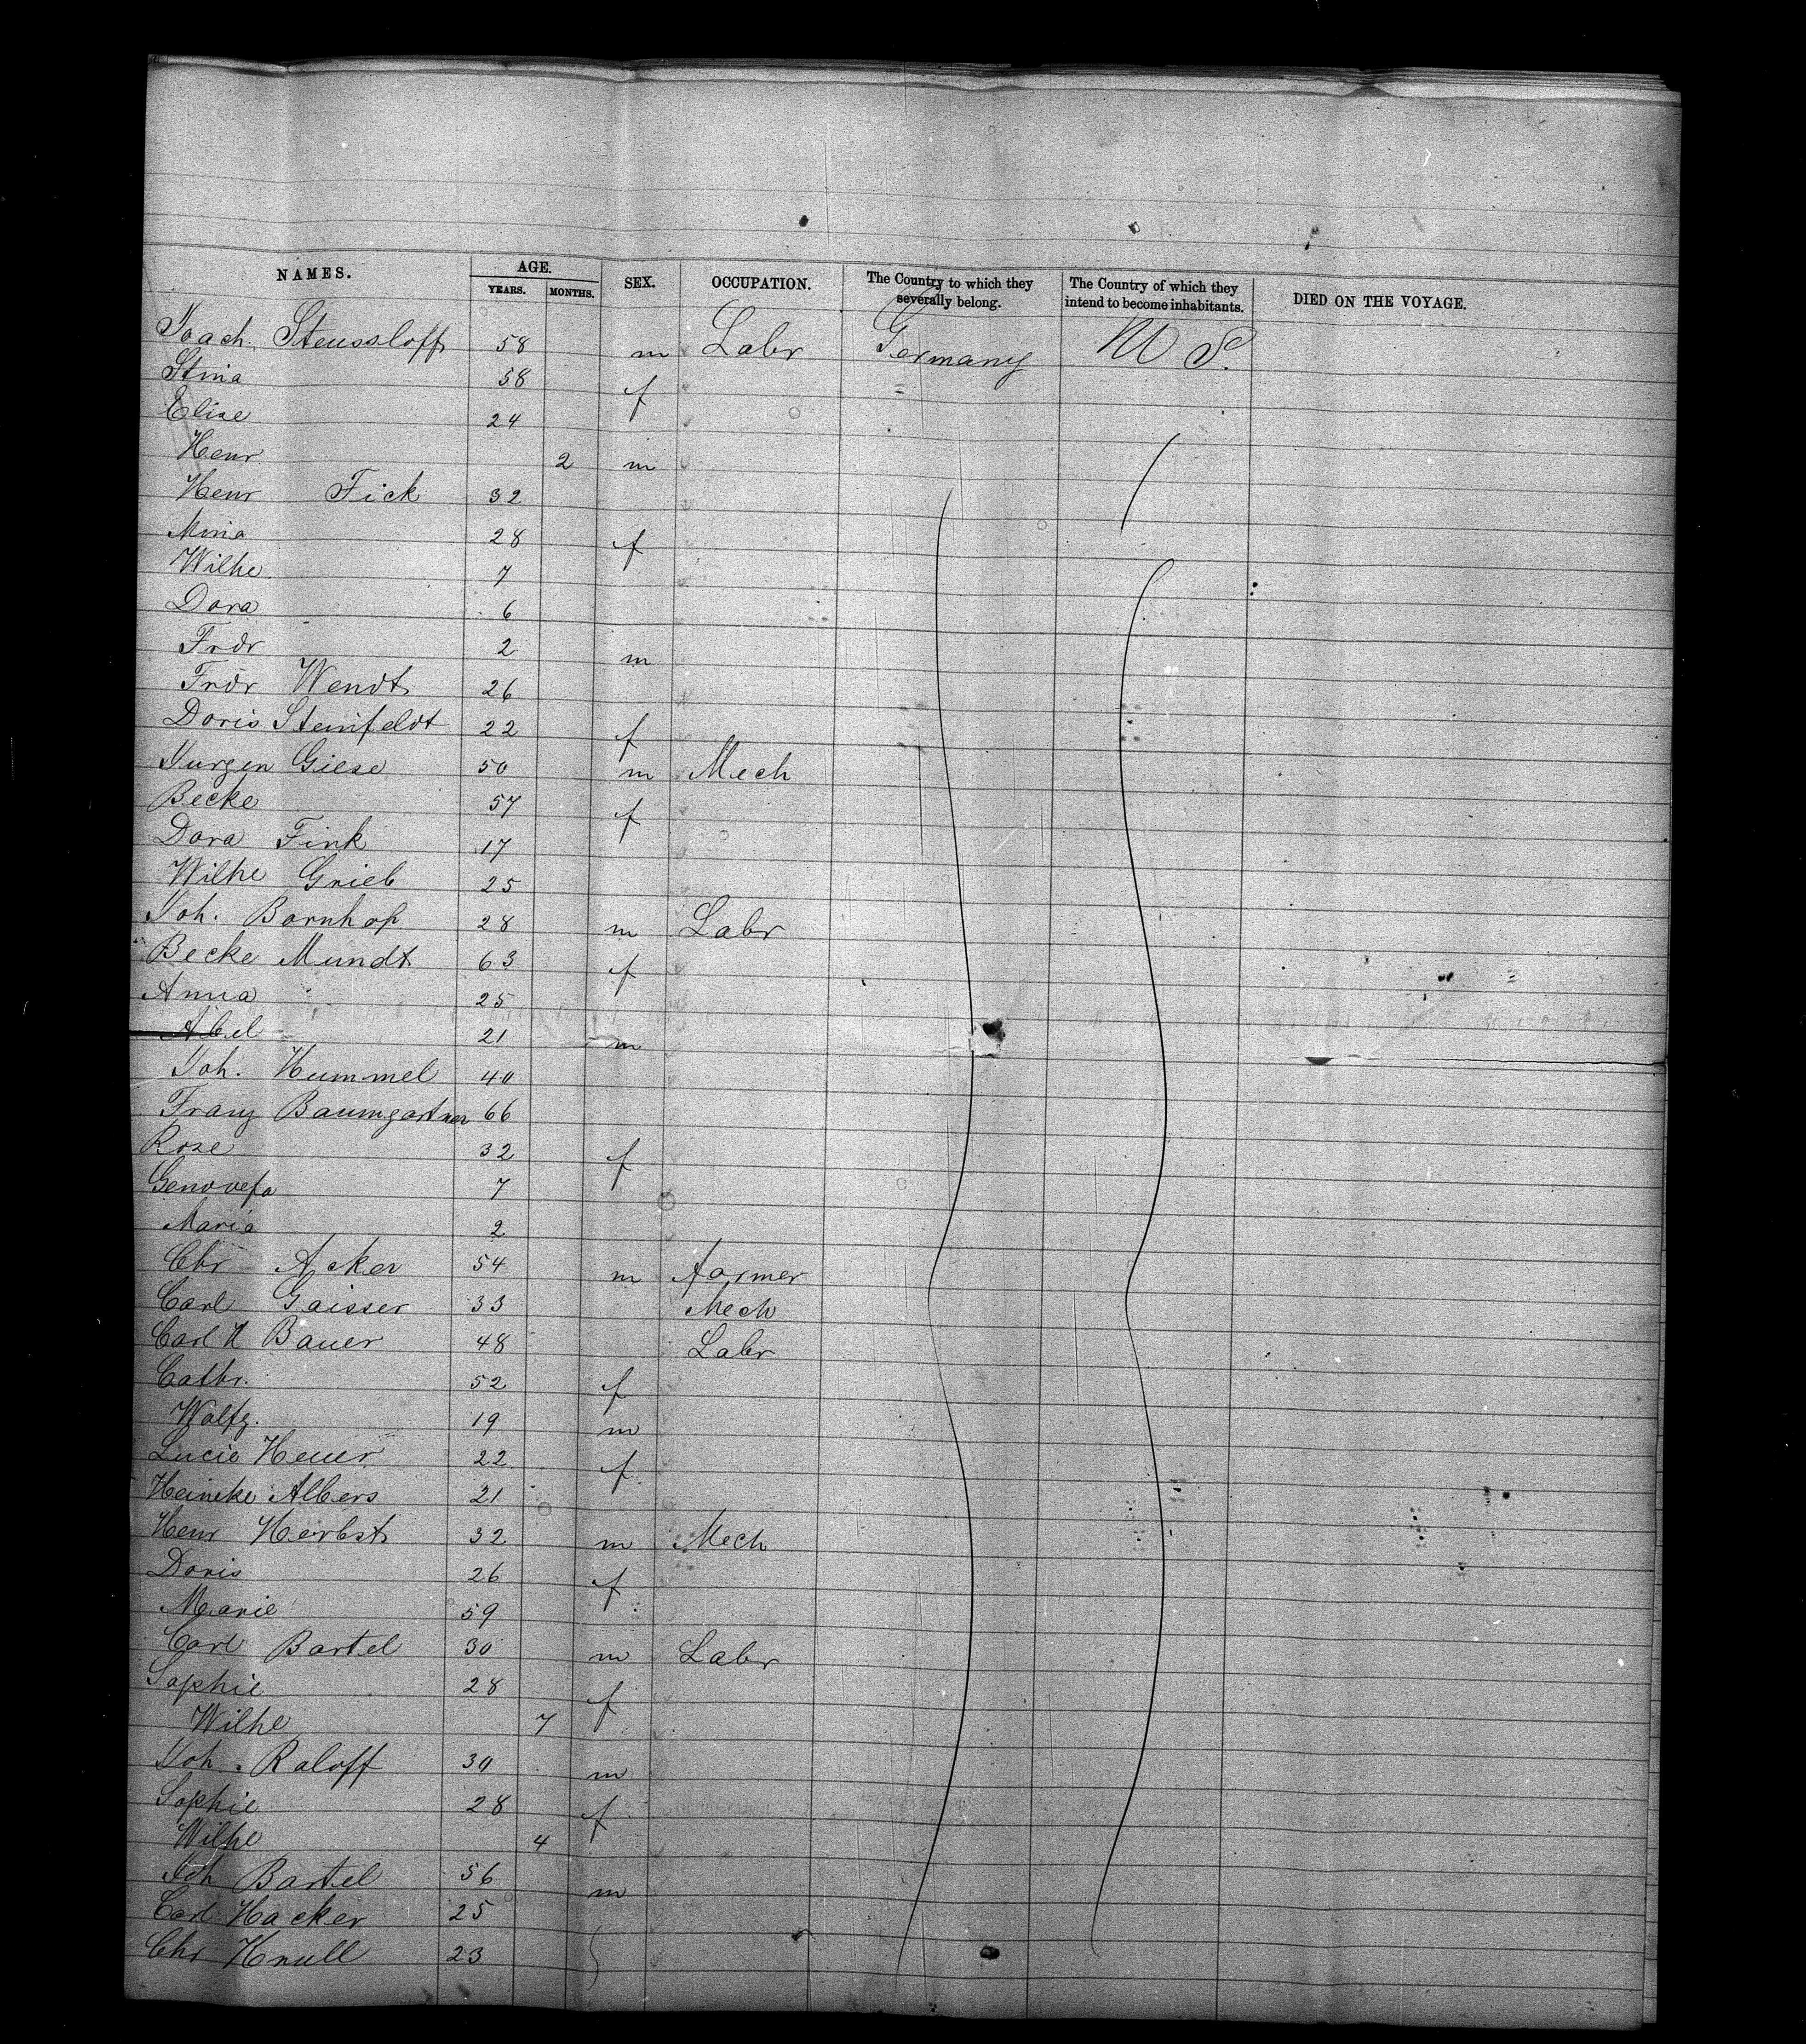 NAMES. AGE. SEX. OCCUPATION. The Country to which they severally belong. The Country of which they intend to become inhabitants. DIED ON THE VOYAGE.
YEARS. MONTHS.
Joach. Steussloff 58 m Labr Germany U S.
Stina 58 f
Elise 24
Henr 2 m
Henr Fick 32
Maria 28 f
Wilhe 7
Dora 6
Frdr 2 m
Frdr Wendt 26
Doris Steinfeldt 22 f
Jurgen Giese 50 m Mech
Becke 57 f
Dora Fink 17
Wilhe Grieb 25
Joh. Bornhop 28 m Labr
Becke Mundt 63 f
Anna 25
Abel 21 m
Joh. Hummel 40
Franz Baumgartner 66
Rose 32 f
Genovefa 7
Maria 2
Chr Acker 54 m farmer
Carl Gaisser 33 Mech
Carl H Bauer 48 Labr
Cathr. 52 f
Wolfg. 19 m
Lucie Heuer 22 f
Heineke Albers 21
Henr Herbst 32 m Mech
Doris 26 f
Marie 59
Carl Bartel 30 m Labr
Sophie 28 f
Wilhe 7
Joh. Raloff 30 m
Sophie 28 f
Wilhe 4
Joh Bartel 56 m
Carl Hacker 25
Chr Knull 23